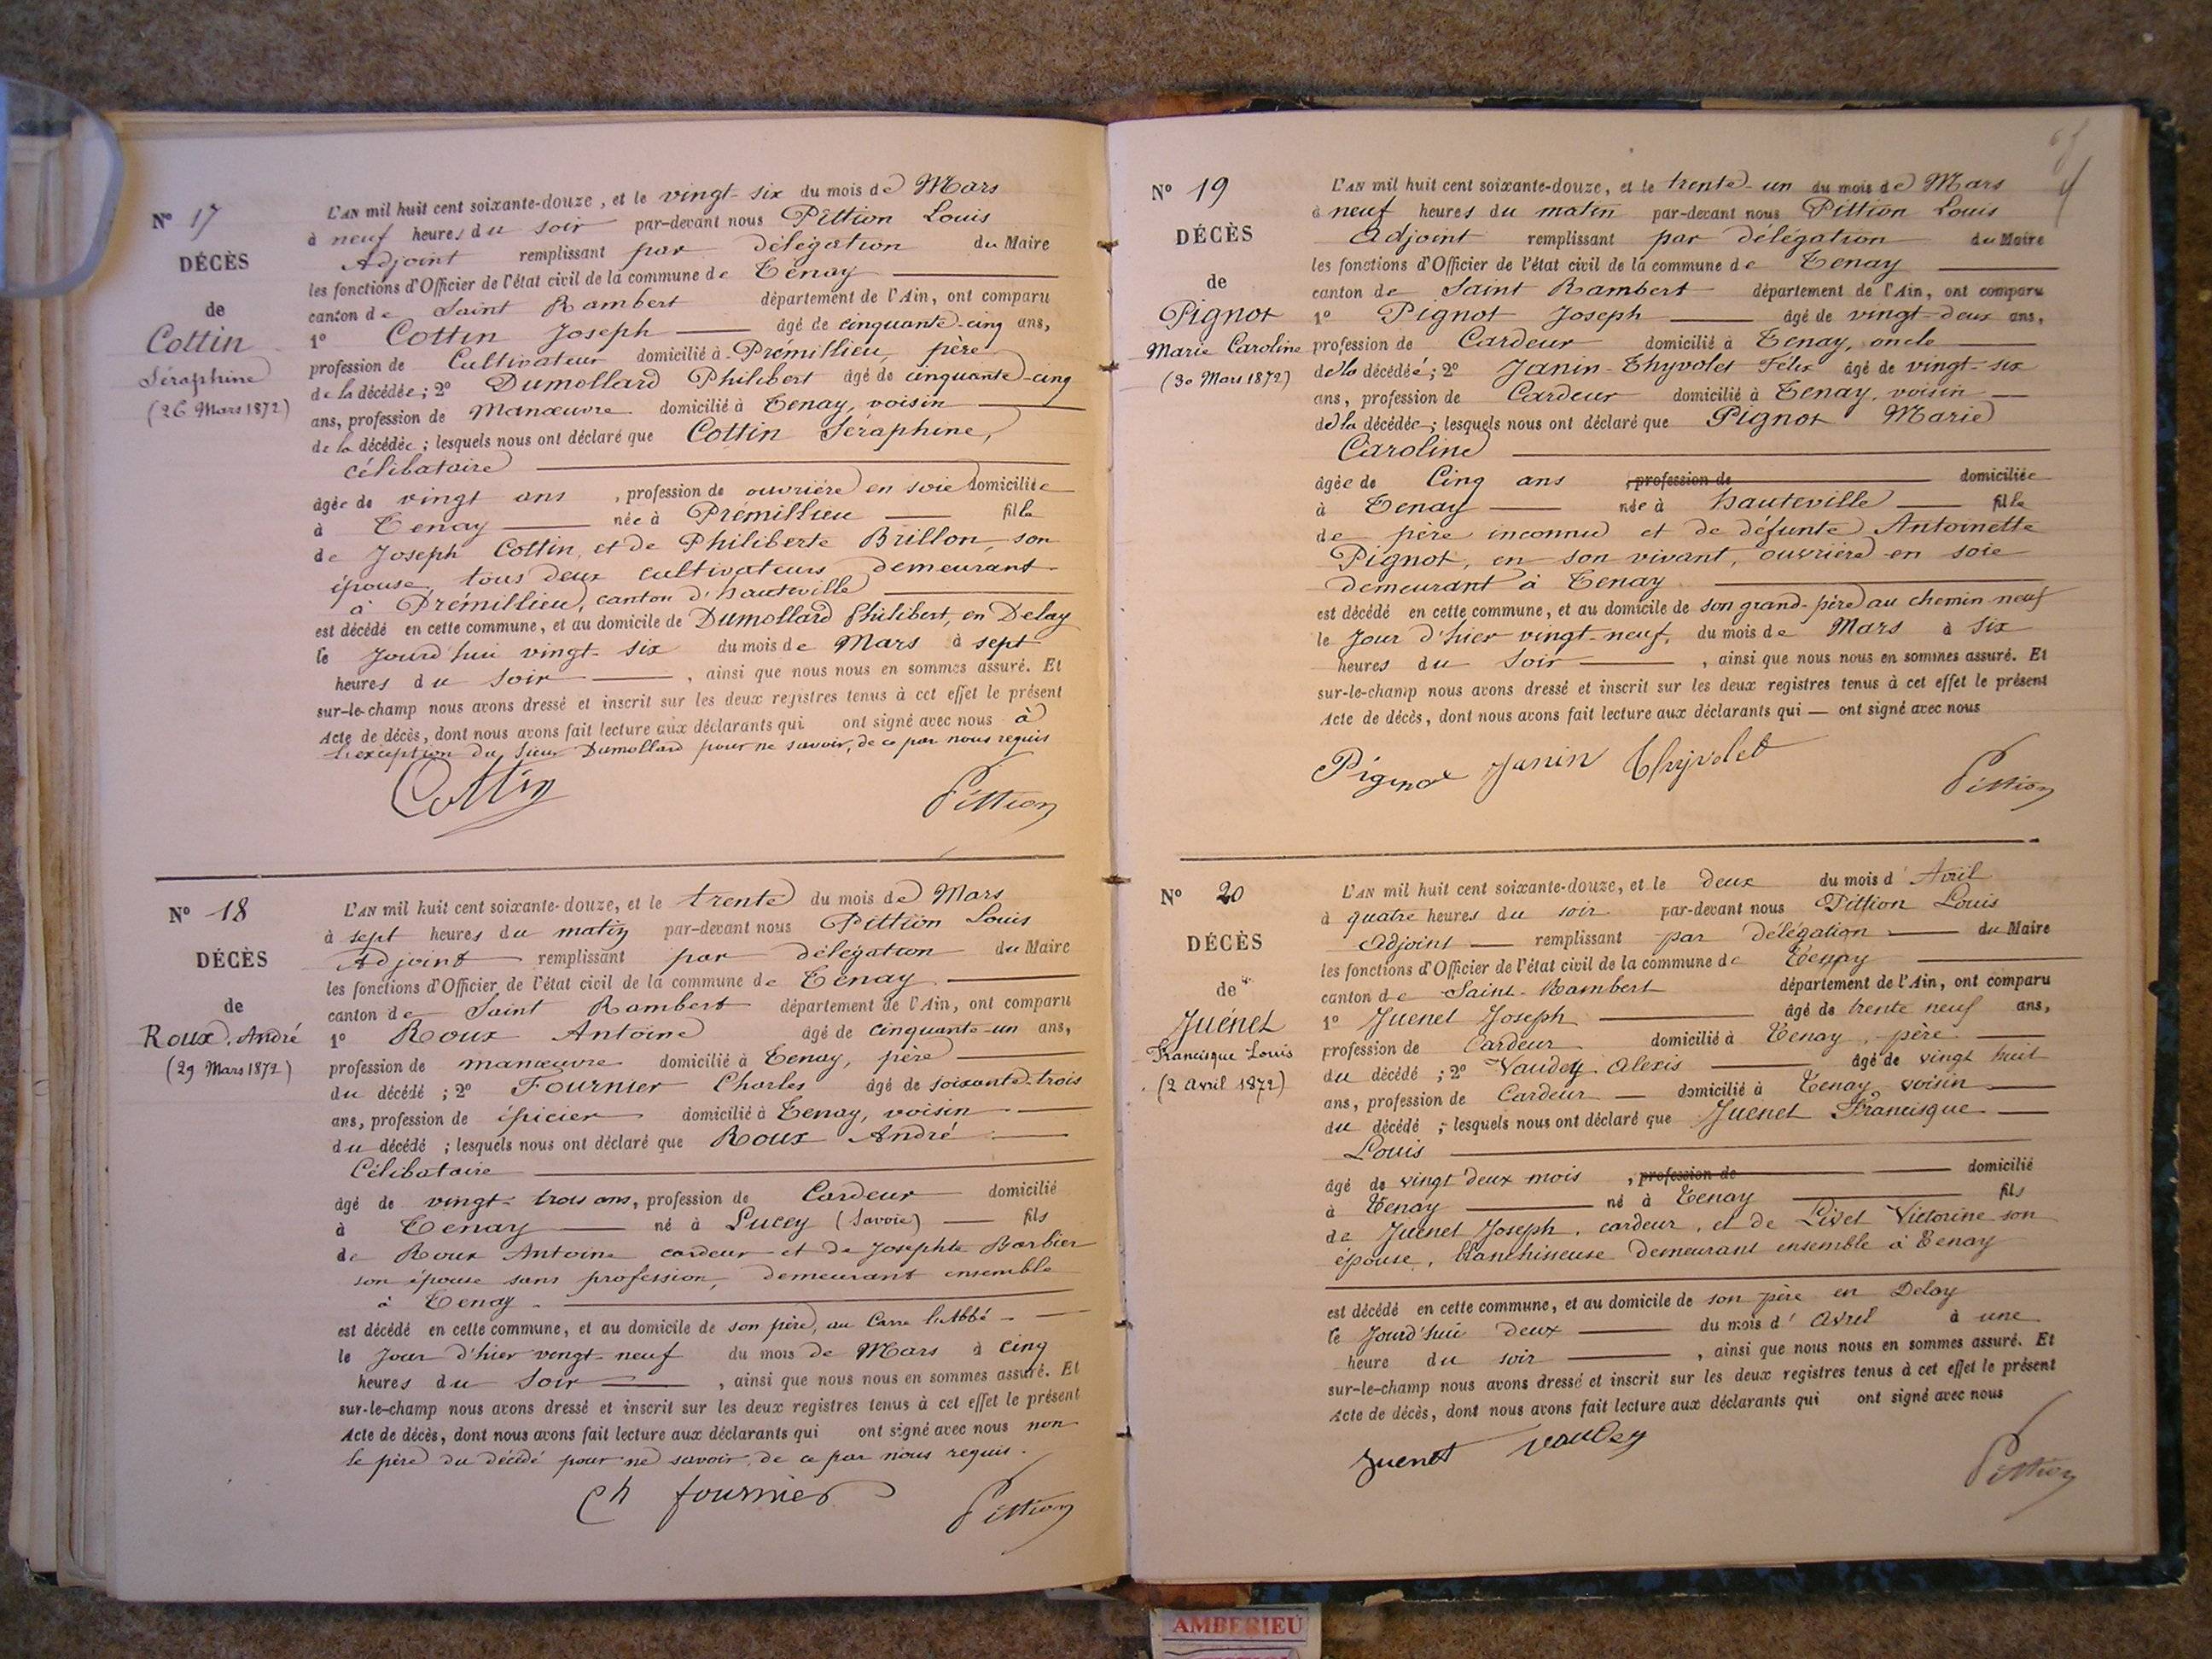 N° 17
DÉCÈS
de
Cottin
Séraphine
(26 Mars 1872)
L'AN mil huit cent soixante-douze, et le vingt-six du mois de Mars
à neuf heures du soir par-devant nous Pittion Louis
Adjoint remplissant par délégation du Maire
les fonctions d'Officier de l'état civil de la commune de Tenay
canton de Saint Rambert département de l'Ain, ont comparu
1° Cottin Joseph âgé de cinquante-cinq ans,
profession de Cultivateur domicilié à Prémillieu, père
de la décédée ; 2° Dumollard Philibert âgé de cinquante-cinq
ans, profession de Manœuvre domicilié à Tenay, voisin
de la décédée ; lesquels nous ont déclaré que Cottin Séraphine,
célibataire
âgée de vingt ans , profession de ouvrière en soie domiciliée
à Tenay née à Prémillieu fille
de Joseph Cottin, et de Philiberte Brillon, son
épouse, tous deux cultivateurs demeurant
à Prémillieu, canton d'hauteville
est décédé en cette commune, et au domicile de Dumollard Philibert, en Delay
le jourd'hui vingt-six du mois de Mars à sept
heures du soir , ainsi que nous nous en sommes assuré. Et
sur-le-champ nous avons dressé et inscrit sur les deux registres tenus à cet effet le présent
Acte de décès, dont nous avons fait lecture aux déclarants qui ont signé avec nous à
l'exception du sieur Dumollard pour ne savoir, de ce par nous requis
Cottin Pittion
N° 18
DÉCÈS
de
Roux, André
(29 Mars 1872)
L'AN mil huit cent soixante-douze, et le trente du mois de Mars
à sept heures du matin par-devant nous Pittion Louis
Adjoint remplissant par délégation du Maire
les fonctions d'Officier de l'état civil de la commune de Tenay
canton de Saint Rambert département de l'Ain, ont comparu
1° Roux Antoine âgé de cinquante-un ans,
profession de manœuvre domicilié à Tenay, père
du décédé ; 2° Fournier Charles âgé de soixante-trois
ans, profession de épicier domicilié à Tenay, voisin
du décédé ; lesquels nous ont déclaré que Roux André
Célibataire
âgé de vingt-trois ans, profession de Cardeur domicilié
à Tenay né à Lucey (Savoie) fils
de Roux Antoine cardeur et de Josephte Barbier
son épouse sans profession, demeurant ensemble
à Tenay.
est décédé en cette commune, et au domicile de son père, au Carre l'Abbé
le jour d'hier vingt-neuf du mois de Mars à cinq
heures du soir , ainsi que nous nous en sommes assuré. Et
sur-le-champ nous avons dressé et inscrit sur les deux registres tenus à cet effet le présent
Acte de décès, dont nous avons fait lecture aux déclarants qui ont signé avec nous non
le père du décédé pour ne savoir de ce par nous requis.
Ch fournier Pittion
N° 19
DÉCÈS
de
Pignot
Marie Caroline
(30 Mars 1872)
L'AN mil huit cent soixante-douze, et le trente-un du mois de Mars
à neuf heures du matin par-devant nous Pittion Louis
Adjoint remplissant par délégation du Maire
les fonctions d'Officier de l'état civil de la commune de Tenay
canton de Saint Rambert département de l'Ain, ont comparu
1° Pignot Joseph âgé de vingt-deux ans,
profession de Cardeur domicilié à Tenay, oncle
de la décédée ; 2° Janin-Thyvolet Félix âgé de vingt-six
ans, profession de Cardeur domicilié à Tenay, voisin
de la décédée ; lesquels nous ont déclaré que Pignot Marie
Caroline
âgée de Cinq ans , profession de domiciliée
à Tenay née à hauteville fille
de père inconnu et de défunte Antoinette
Pignot, en son vivant, ouvrière en soie
demeurant à Tenay
est décédé en cette commune, et au domicile de son grand-père au chemin neuf
le jour d'hier vingt-neuf, du mois de Mars à six
heures du soir , ainsi que nous nous en sommes assuré. Et
sur-le-champ nous avons dressé et inscrit sur les deux registres tenus à cet effet le présent
Acte de décès, dont nous avons fait lecture aux déclarants qui — ont signé avec nous
Pignot Janin Thyvolet Pittion
N° 20
DÉCÈS
de
Juénet
Francisque Louis
(2 avril 1872)
L'AN mil huit cent soixante-douze, et le deux du mois d'Avril
à quatre heures du soir par-devant nous Pittion Louis
Adjoint remplissant par délégation du Maire
les fonctions d'Officier de l'état civil de la commune de Tenay
canton de Saint-Rambert département de l'Ain, ont comparu
1° Juenet Joseph âgé de trente neuf ans,
profession de Cardeur domicilié à Tenay, père
du décédé ; 2° Vaudey Alexis âgé de vingt huit
ans, profession de Cardeur domicilié à Tenay voisin
du décédé ; lesquels nous ont déclaré que Juénet Francisque
Louis
âgé de vingt deux mois , profession de domicilié
à Tenay né à Tenay fils
de Juenet Joseph, cardeur, et de Livet Victorine son
épouse, blanchisseuse demeurant ensemble à Tenay
est décédé en cette commune, et au domicile de son père en Delay
le jourd'hui deux du mois d'avril à une
heure du soir , ainsi que nous nous en sommes assuré. Et
sur-le-champ nous avons dressé et inscrit sur les deux registres tenus à cet effet le présent
Acte de décès, dont nous avons fait lecture aux déclarants qui ont signé avec nous
Juenet Vaudey Pittion
AMBERIEU